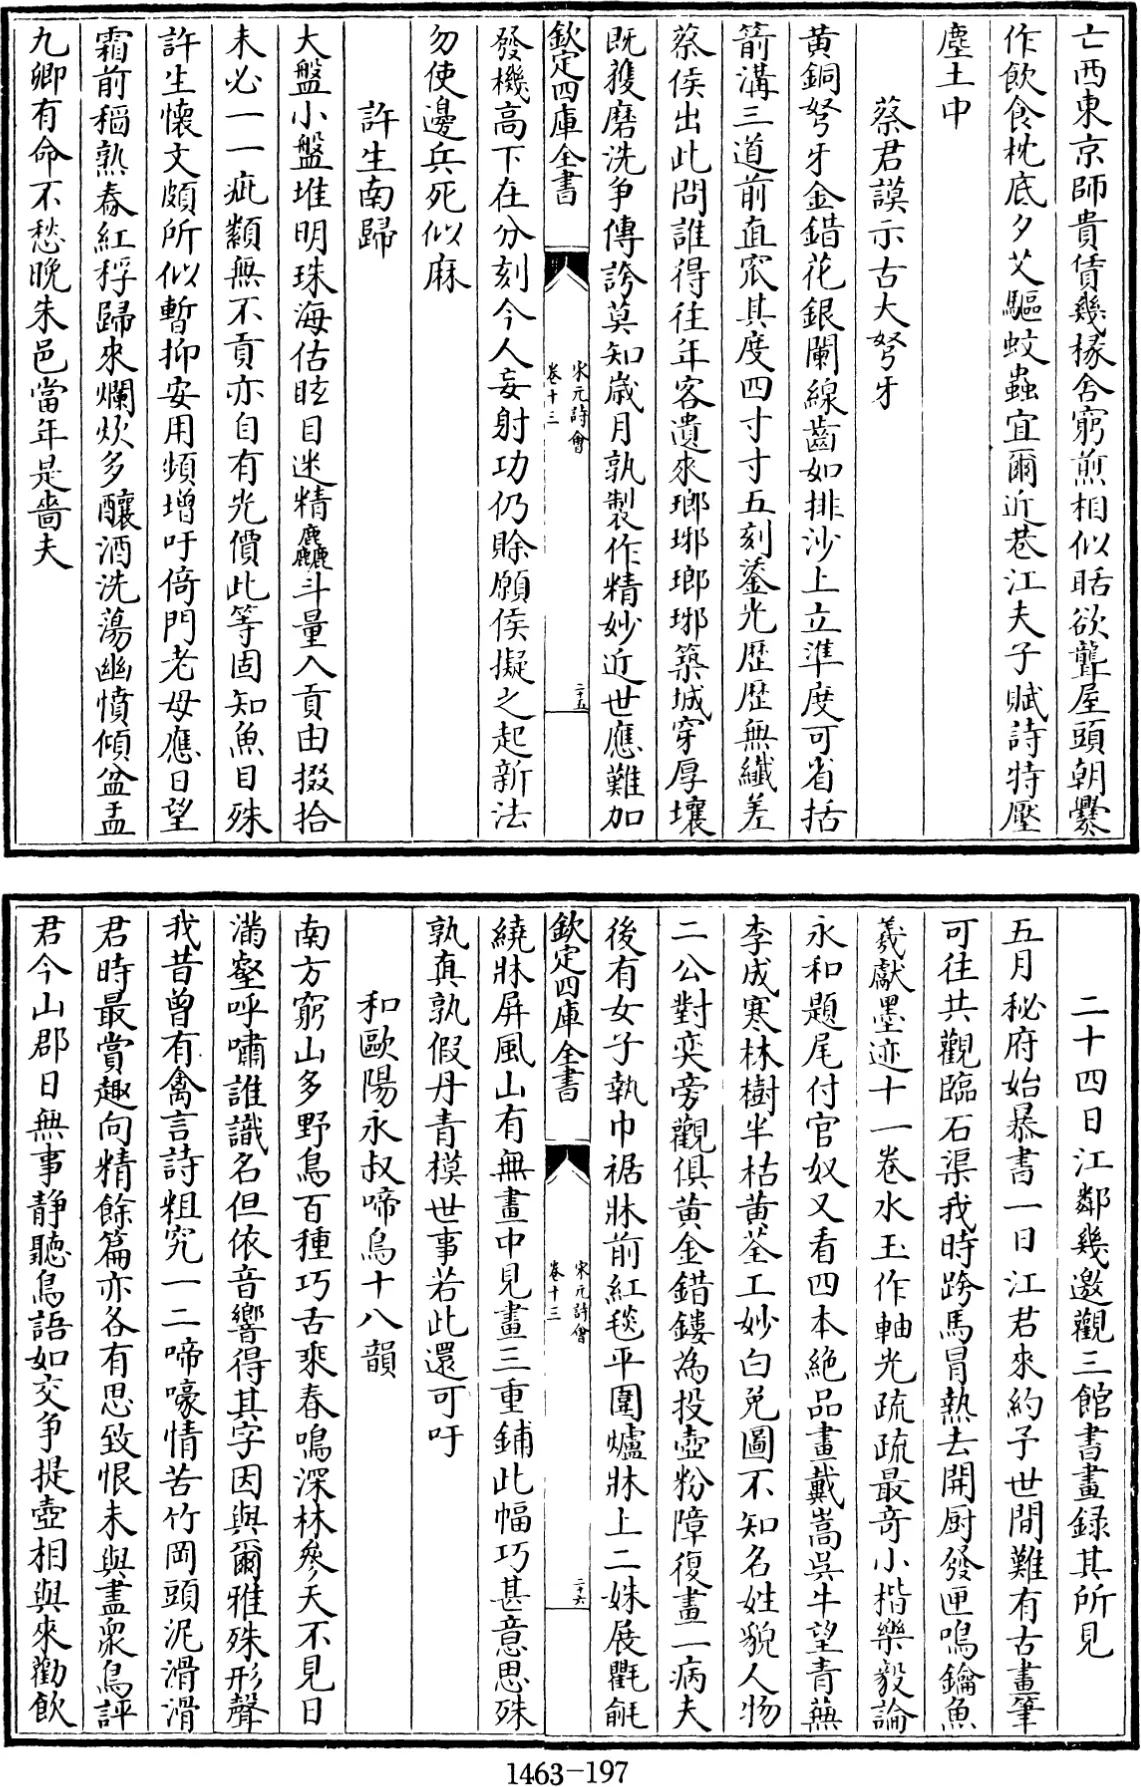 亡西東京師貴賃幾椽舍窮煎相似聒欲聾屋頭朝爨
作飲食枕底夕艾驅蚊蟲宜爾近巷江夫子賦詩特壓
塵土中
蔡君謨示古大弩牙
黄銅弩牙金錯花銀闌線齒如排沙上立準度可省括
箭溝三道前直窊其度四寸寸五刻鋈光歴歴無纎差
蔡侯出此問誰得往年客遺來瑯琊瑯琊築城穿厚壤
既獲磨洗争傳誇莫知嵗月孰製作精妙近世應難加
欽定四庫全書
宋元詩會
卷十三
二十五
發機高下在分刻今人妄射功仍賒願侯擬之起新法
勿使邊兵死似麻
許生南歸
大盤小盤堆明珠海估眩目迷精麤斗量入貢由掇拾
未必一一疵纇無不貢亦自有光價此等固知魚目殊
許生懷文頗所似暫抑安用頻增吁倚門老母應日望
霜前稻熟春紅稃歸來爛炊多釀酒洗蕩幽憤傾盆盂
九卿有命不愁晚朱邑當年是嗇夫
二十四日江鄰幾邀觀三館書畫録其所見
五月秘府始暴書一日江君來約予世間難有古畫筆
可往共觀臨石渠我時跨馬冒熱去開厨發匣鳴鑰魚
羲獻墨迹十一卷水玉作軸光疏疏最竒小楷樂毅論
永和題尾付官奴又看四本絶品畫戴嵩吳牛望青蕪
李成寒林樹半枯黄荃工妙白兎圖不知名姓貌人物
二公對奕旁觀俱黄金錯鏤為投壺粉障復畫一病夫
後有女子執巾裾牀前紅毯平圍爐牀上二姝展氍毹
欽定四庫全書
宋元詩會
卷十三
二十六
繞牀屏風山有無畫中見畫三重鋪此幅巧甚意思殊
孰真孰假丹青模世事若此還可吁
和歐陽永叔啼鳥十八韻
南方窮山多野鳥百種巧舌乘春鳴深林參天不見日
滿壑呼嘯誰識名但依音響得其字因與爾雅殊形聲
我昔曾有禽言詩粗究一二啼嚎情苦竹岡頭泥滑滑
君時最賞趣向精餘篇亦各有思致恨未與盡衆鳥評
君今山郡日無事靜聽鳥語如交争提壺相與來勸飲
1463-197